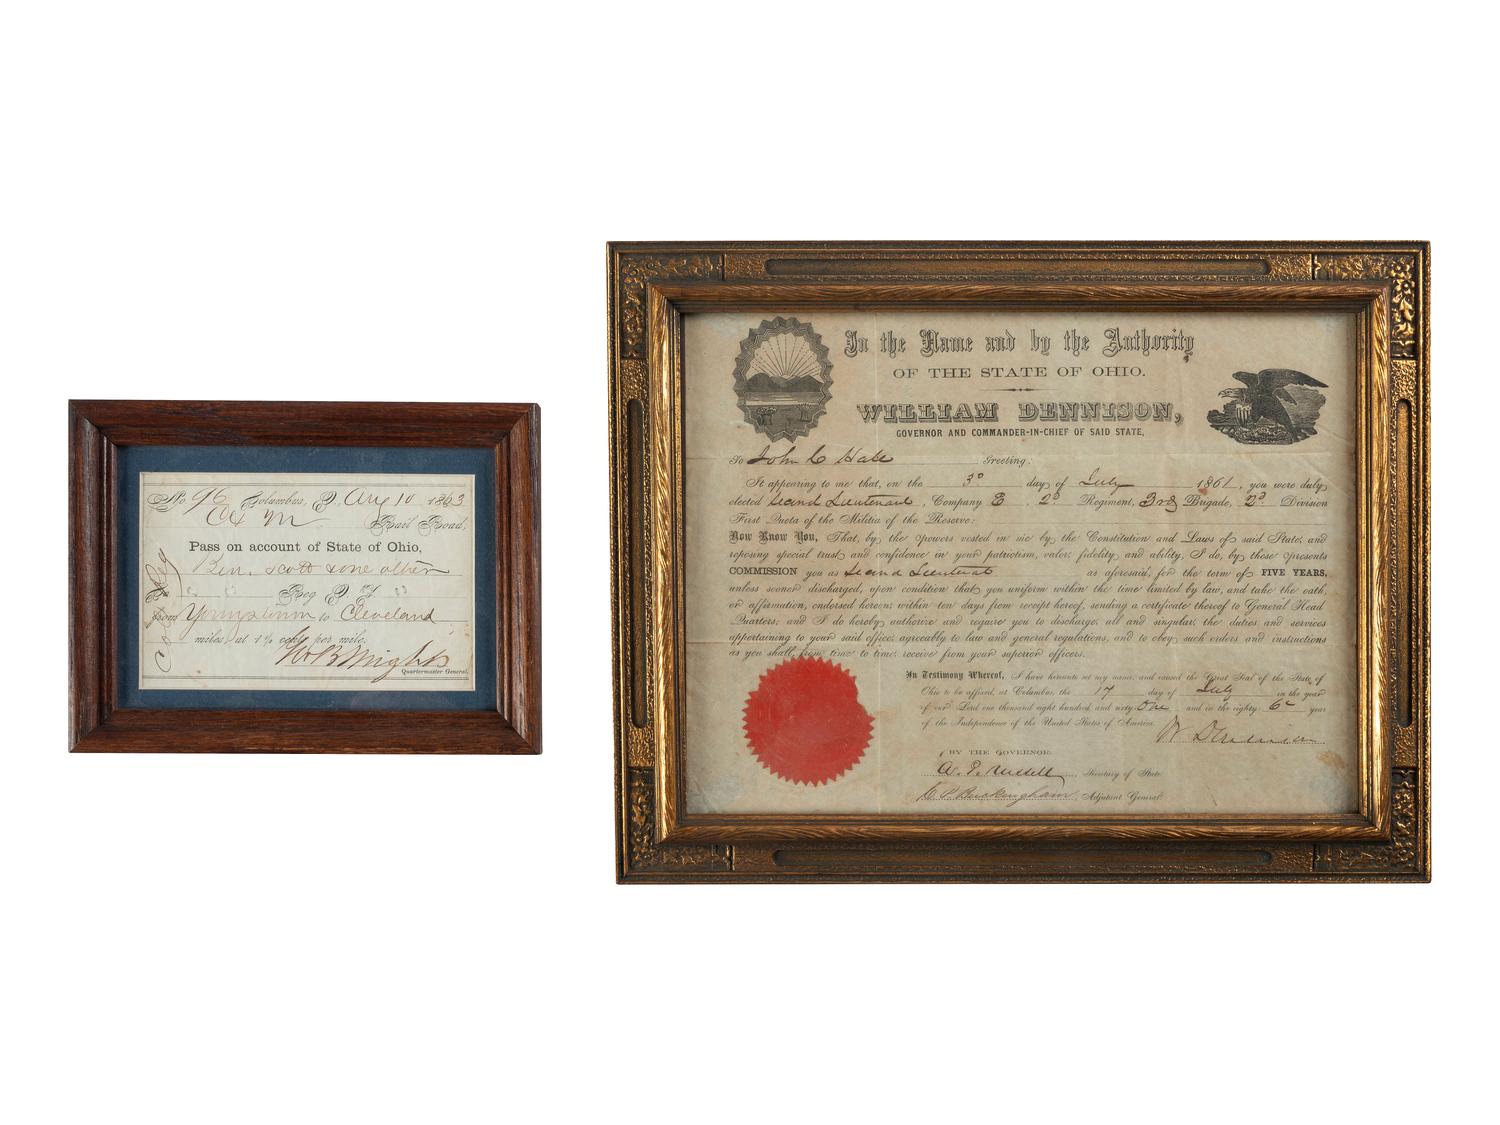 No. 96 Columbus, O. Aug 10 1863
C & M Rail Road.
Pass on account of State of Ohio,
Ben. Scott & one other
Reg O. V.
from Youngstown to Cleveland
miles, at 1½ cents per mile.
Quartermaster General.
In the Name and by the Authority
OF THE STATE OF OHIO.
WILLIAM DENNISON,
GOVERNOR AND COMMANDER-IN-CHIEF OF SAID STATE,
To John C Hale Greeting:
It appearing to me that, on the 3d day of July 1861, you were duly
elected Second Lieutenant, Company E 2d Regiment, 3rd Brigade, 2d Division
First Quota of the Militia of the Reserve:
Now Know You, That, by the powers vested in me by the Constitution and Laws of said State, and
reposing special trust and confidence in your patriotism, valor, fidelity and ability, I do, by these presents
COMMISSION you as Second Lieutenant as aforesaid, for the term of FIVE YEARS,
unless sooner discharged, upon condition that you uniform within the time limited by law, and take the oath,
or affirmation, endorsed hereon, within ten days from receipt hereof, sending a certificate thereof to General Head
Quarters; and I do hereby authorize and require you to discharge, all and singular, the duties and services
appertaining to your said office, agreeably to law and general regulations, and to obey such orders and instructions
as you shall, from time to time, receive from your superior officers.
In Testimony Whereof, I have hereunto set my name, and caused the Great Seal of the State of
Ohio to be affixed, at Columbus, the 17 day of July in the year
of our Lord one thousand eight hundred and sixty-One and in the eighty 6th year
of the Independence of the United States of America.
W Dennison
BY THE GOVERNOR:
A. P. Russell, Secretary of State.
C. P. Buckingham, Adjutant General.